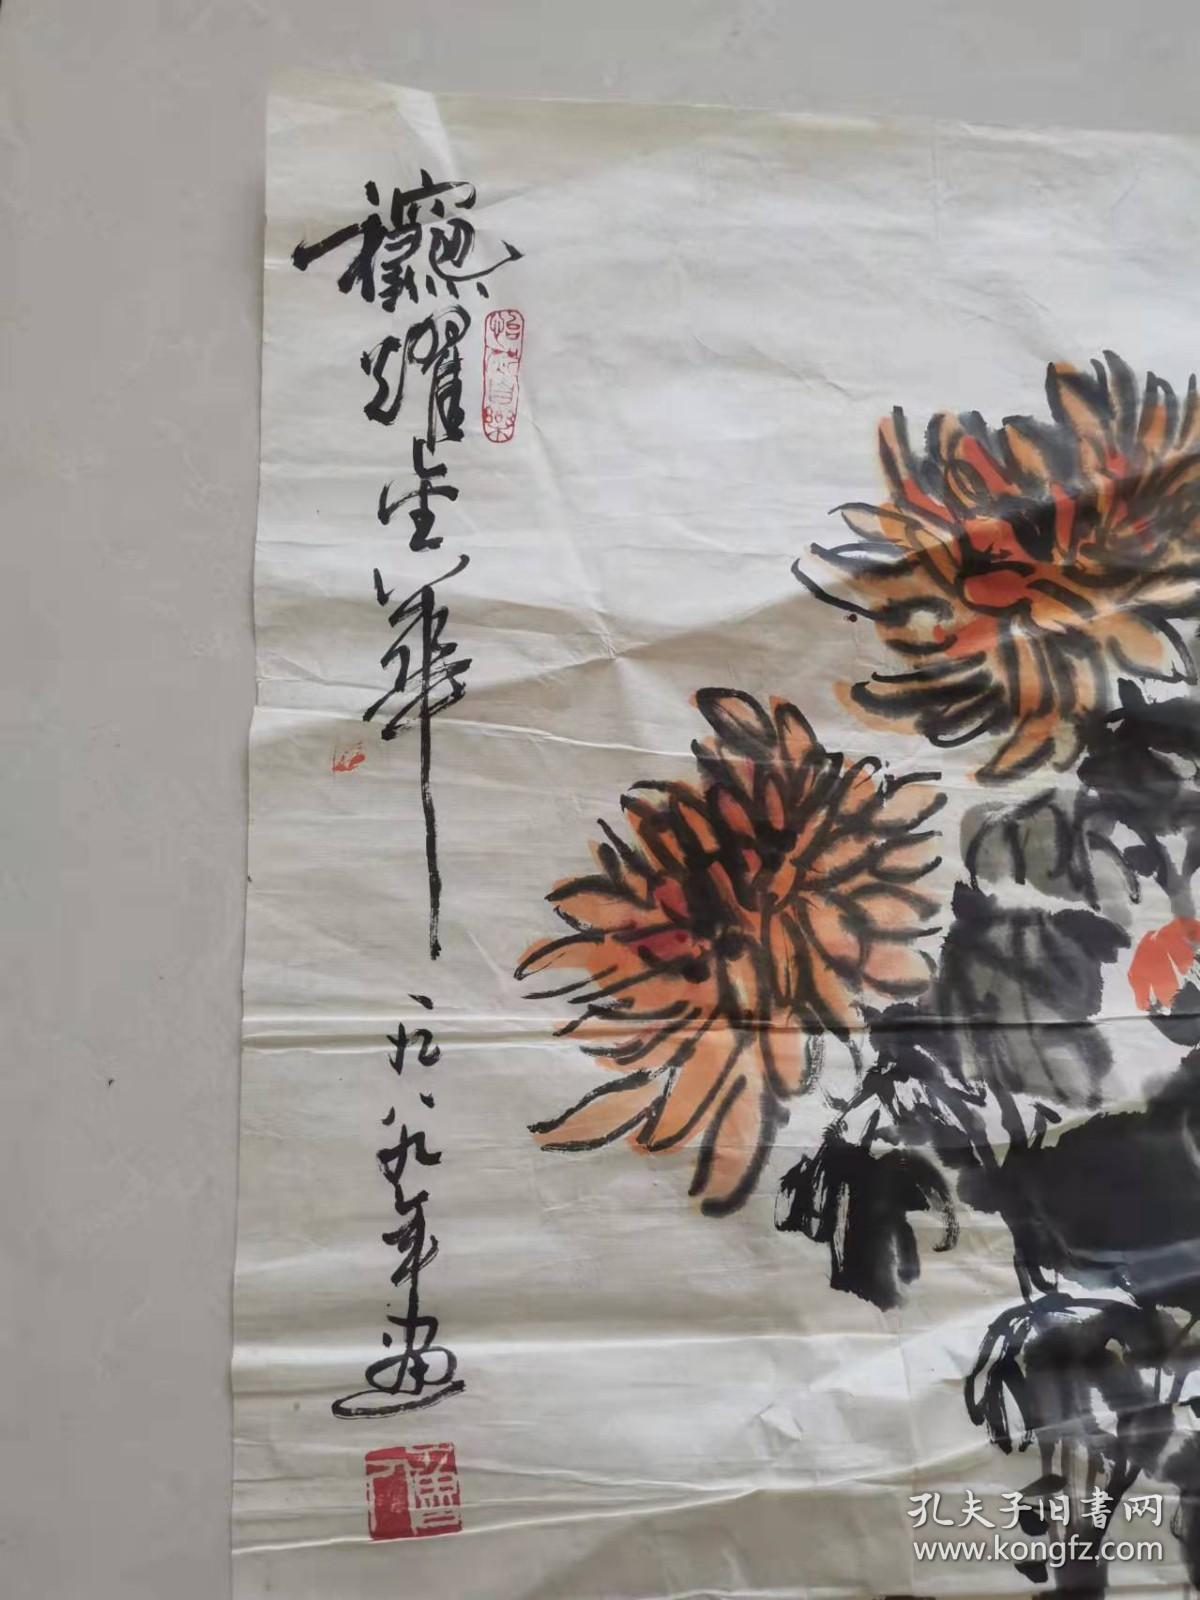 秋耀金华
一九八九年画
孔夫子旧书网
www.kongfz.com